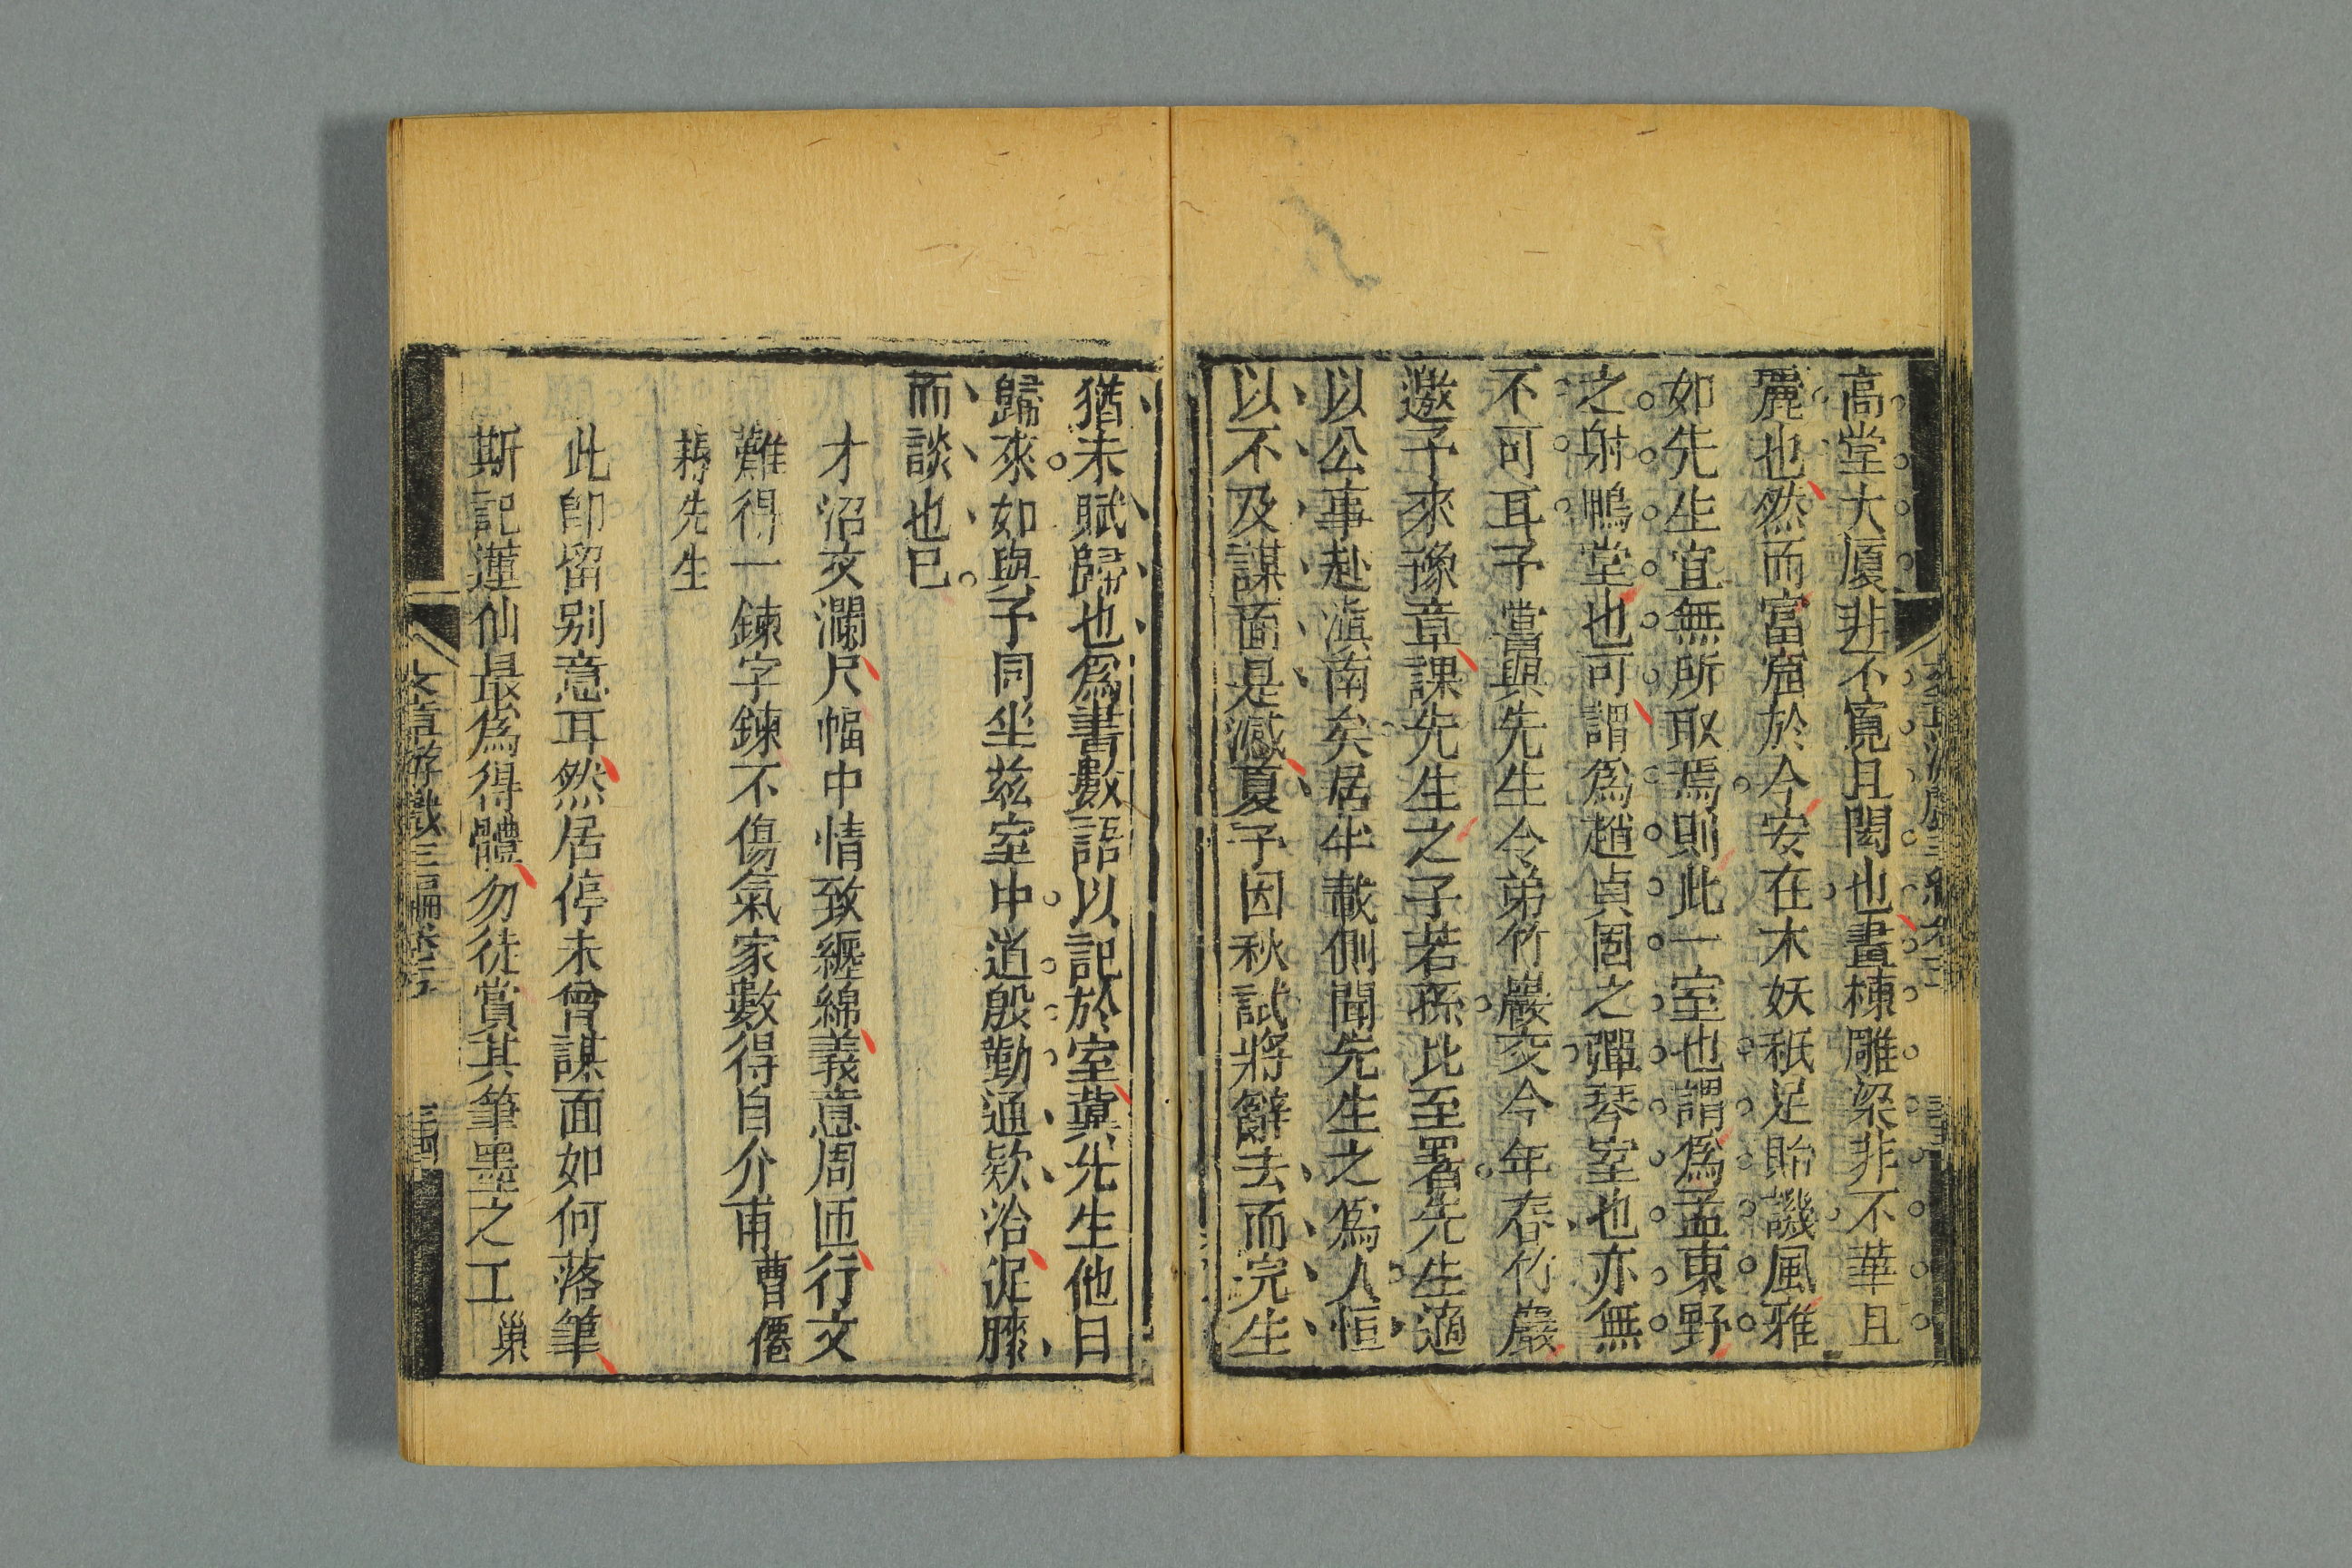 高堂大厦非不寛且閎也畫棟雕梁非不華且
麗也然而富窟於今安在木妖秖足貽譏風雅
如先生宜無所取焉則此一室也謂爲孟東野
之射鴨堂也可謂爲趙貞固之彈琴室也亦無
不可耳予嘗與先生令弟竹嚴交今年春竹嚴
邀予來豫章課先生之子若孫比至署先生適
以公事赴滇南矣居半載側聞先生之爲人恒
以不及謀面是憾夏予因秋試將辭去而浣生
猶未賦歸也爲書數語以記於室冀先生他日
歸來如與予同坐茲室中道殷勤通欵洽促膝
而談也已
才沼文瀾尺幅中情致纒綿義意周匝行文
難得一鍊字鍊不傷氣家數得自介甫曹僊
耨先生
此卽留别意耳然居停未曾謀面如何落筆
斯記蓮仙最爲得體勿徒賞其筆墨之工巢
文章游戲三編卷三